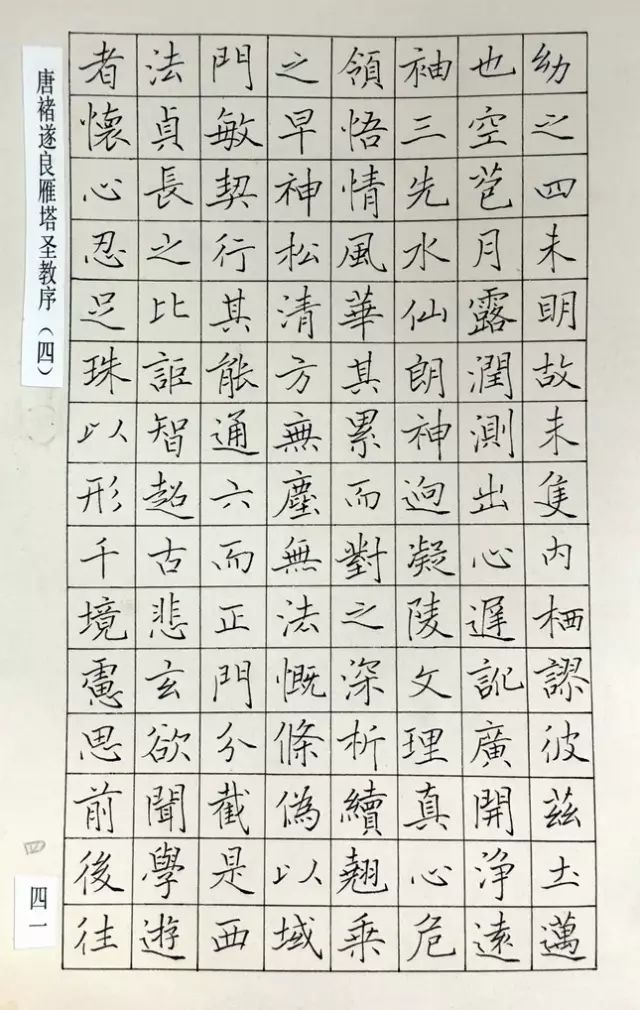 唐褚遂良雁塔圣教序（四）
者法門之領袖也幼
懷貞敏早悟三空之
心長契神情先苞四
忍之行松風水月未
足比其清華仙露明
珠詎能方其朗潤故
以智通無累神測未
形超六塵而迥出隻
千古而無對凝心内
境悲正法之陵遲栖
慮玄門慨深文訛謬
思欲分條析理廣彼
前聞截偽續真開茲
後學是以翹心淨土
往遊西域乗危遠邁
四
四一